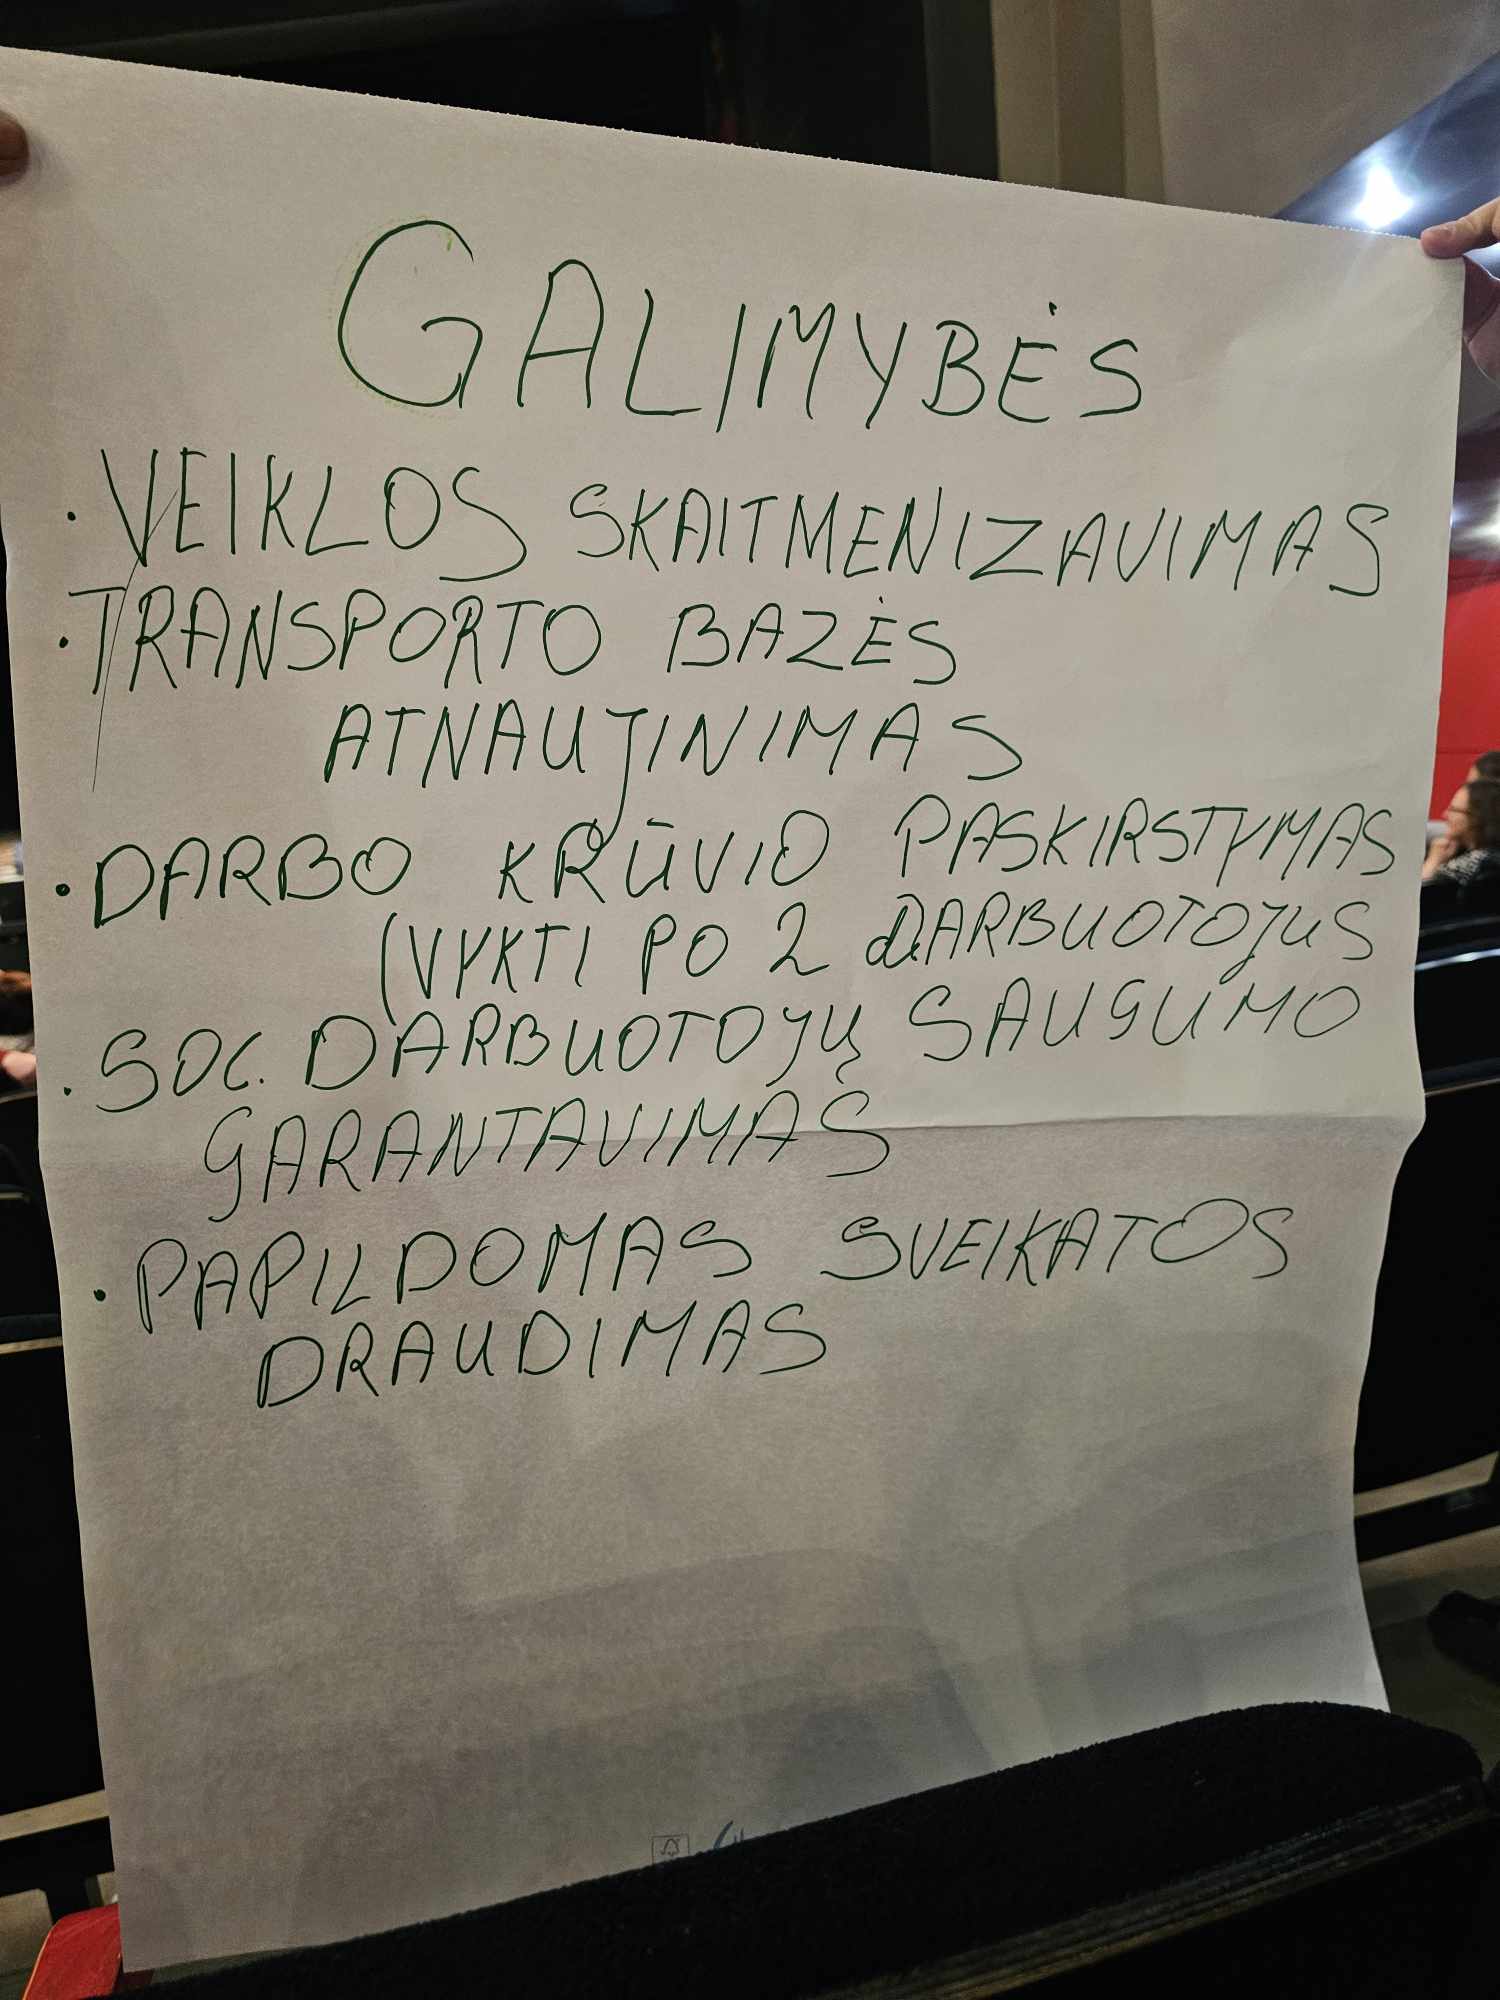 GALIMYBĖS
· VEIKLOS SKAITMENIZAVIMAS
· TRANSPORTO BAZĖS
ATNAUJINIMAS
· DARBO KRŪVIO PASKIRSTYMAS
(VYKTI PO 2 DARBUOTOJUS
· SOC. DARBUOTOJŲ SAUGUMO
GARANTAVIMAS
· PAPILDOMAS SVEIKATOS
DRAUDIMAS